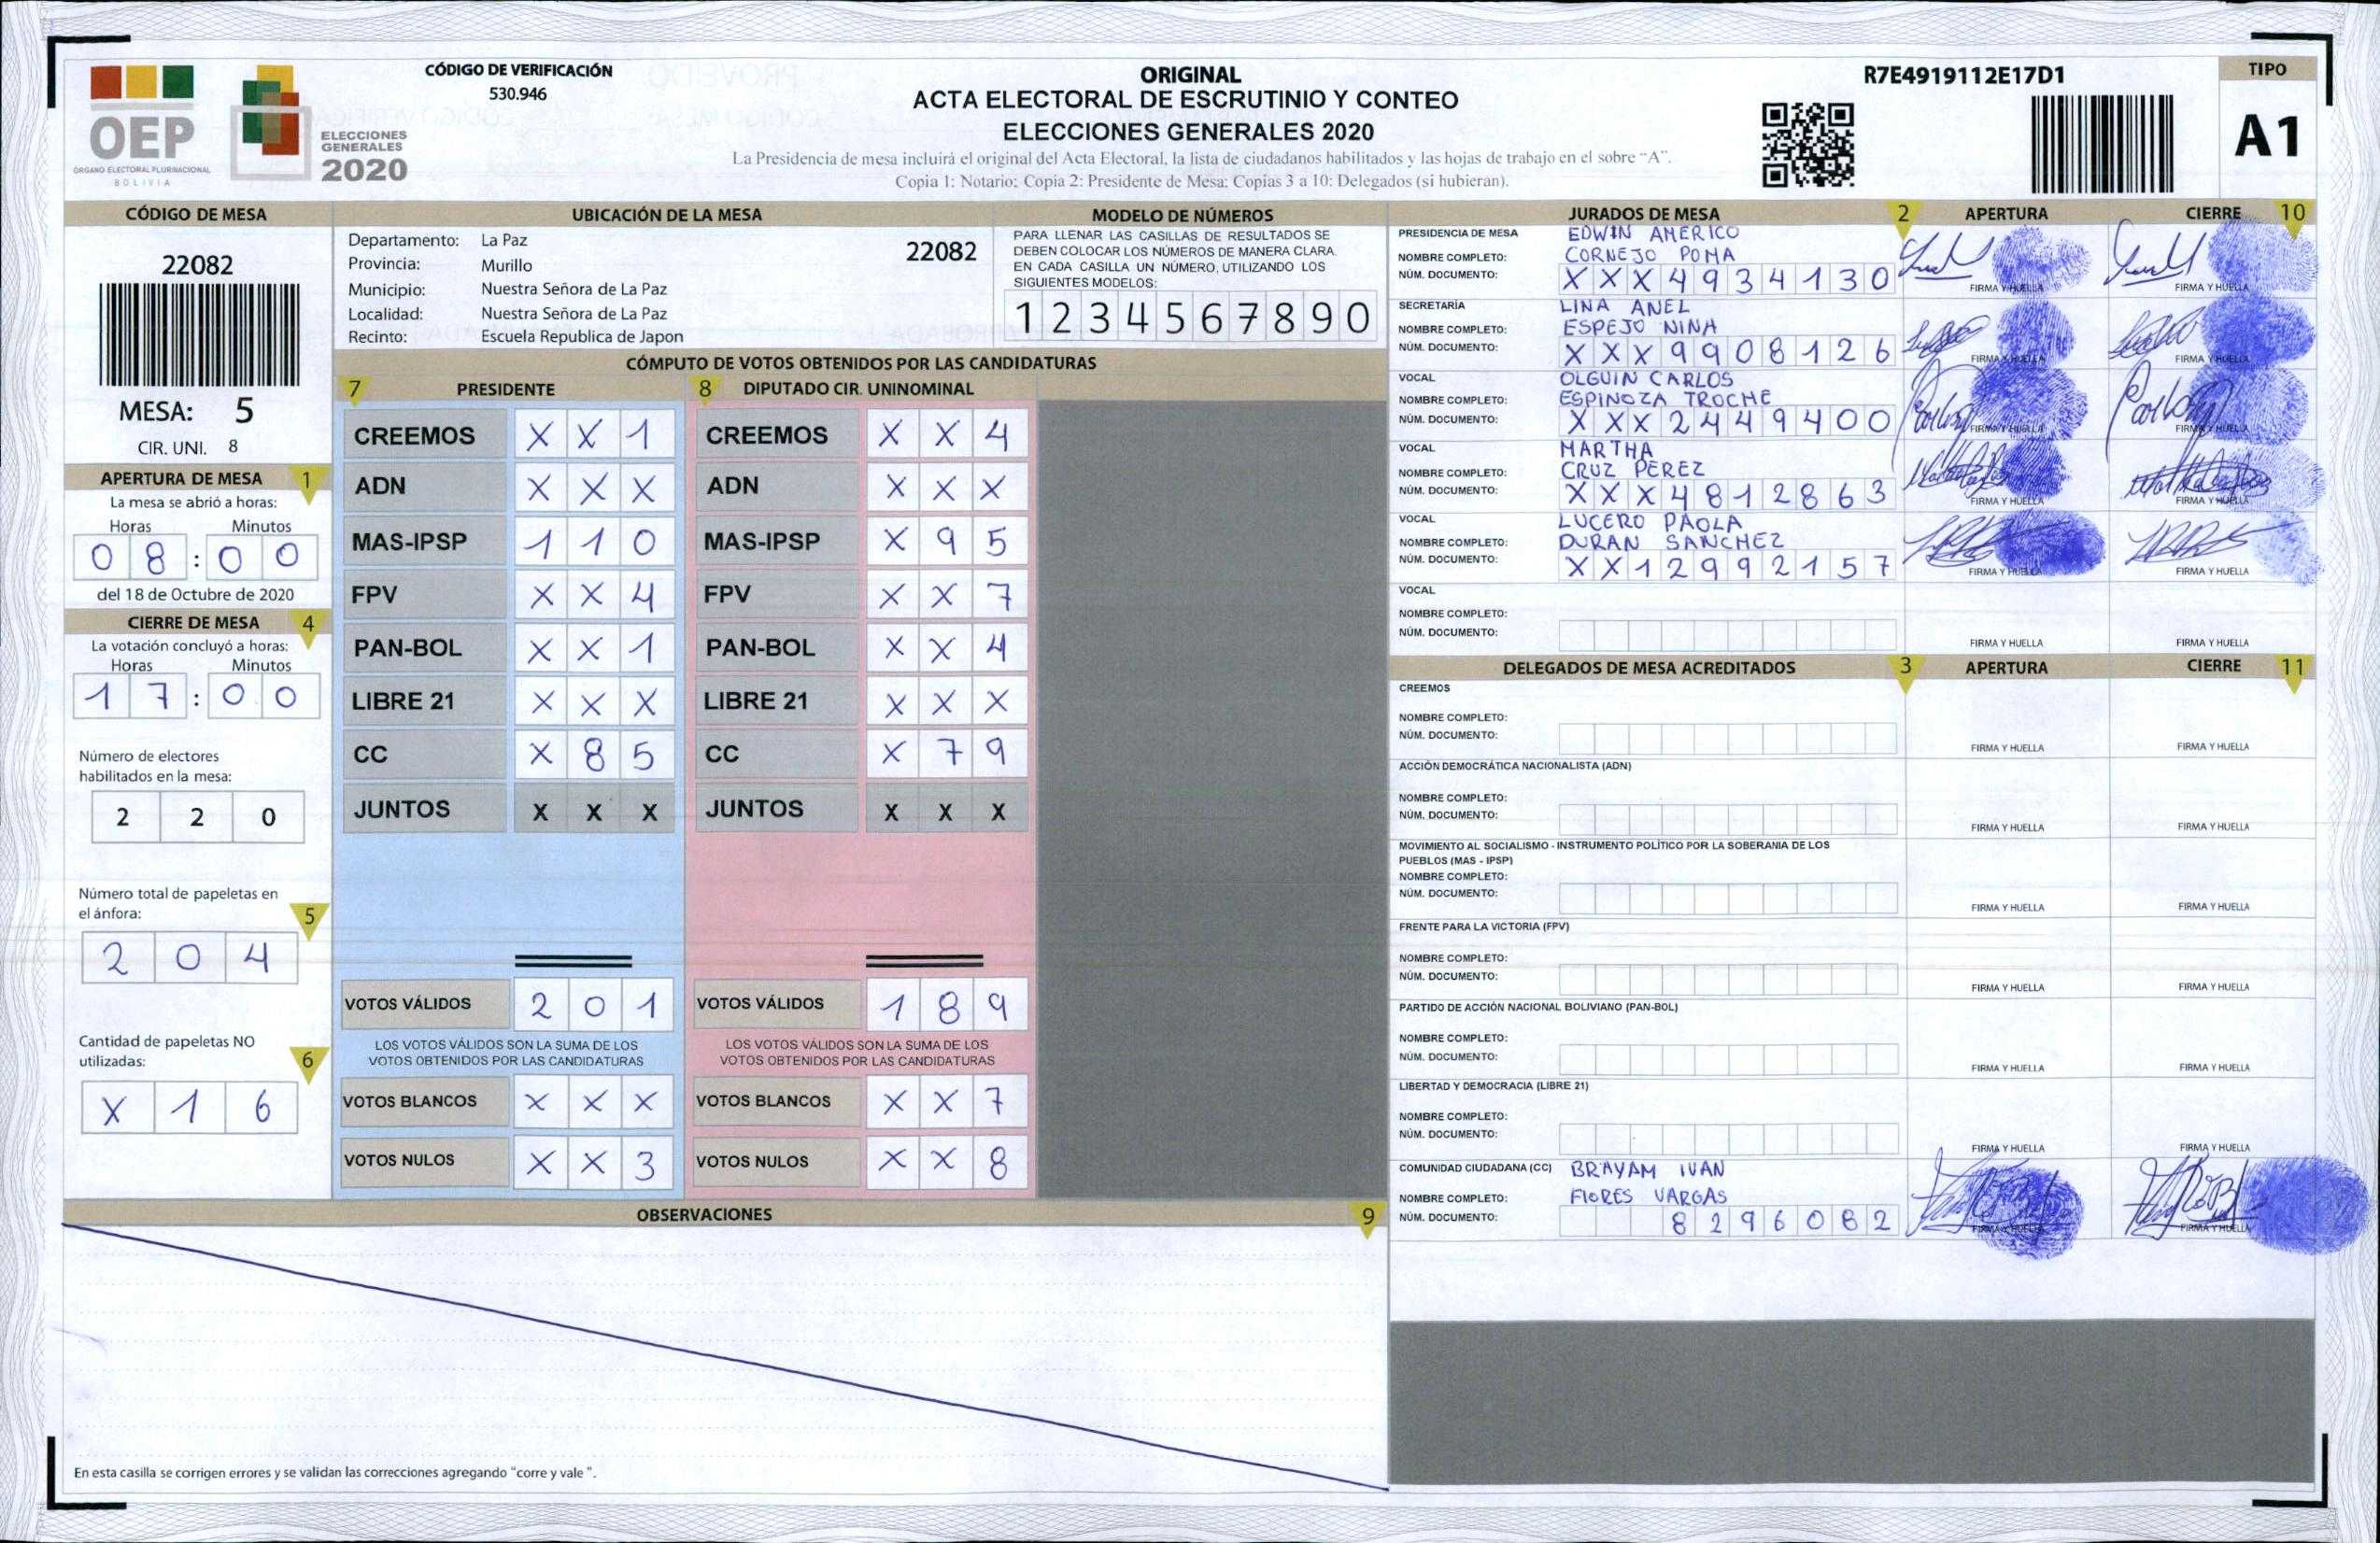 OEP
ÓRGANO ELECTORAL PLURINACIONAL
BOLIVIA
ELECCIONES
GENERALES
2020
CÓDIGO DE VERIFICACIÓN
530.946
ORIGINAL
ACTA ELECTORAL DE ESCRUTINIO Y CONTEO
ELECCIONES GENERALES 2020
La Presidencia de mesa incluirá el original del Acta Electoral, la lista de ciudadanos habilitados y las hojas de trabajo en el sobre "A".
Copia 1: Notario; Copia 2: Presidente de Mesa; Copias 3 a 10: Delegados (si hubieran).
R7E4919112E17D1
TIPO
A1
CÓDIGO DE MESA
22082
MESA: 5
CIR. UNI. 8
APERTURA DE MESA 1
La mesa se abrió a horas:
Horas Minutos
0 8 : 0 0
del 18 de Octubre de 2020
CIERRE DE MESA 4
La votación concluyó a horas:
Horas Minutos
1 7 : 0 0
Número de electores
habilitados en la mesa:
2 2 0
Número total de papeletas en
el ánfora: 5
2 0 4
Cantidad de papeletas NO
utilizadas: 6
X 1 6
UBICACIÓN DE LA MESA
Departamento: La Paz
22082
Provincia: Murillo
Municipio: Nuestra Señora de La Paz
Localidad: Nuestra Señora de La Paz
Recinto: Escuela Republica de Japon
MODELO DE NÚMEROS
PARA LLENAR LAS CASILLAS DE RESULTADOS SE
DEBEN COLOCAR LOS NÚMEROS DE MANERA CLARA.
EN CADA CASILLA UN NÚMERO, UTILIZANDO LOS
SIGUIENTES MODELOS:
1 2 3 4 5 6 7 8 9 0
CÓMPUTO DE VOTOS OBTENIDOS POR LAS CANDIDATURAS
7 PRESIDENTE
CREEMOS X X 1
ADN X X X
MAS-IPSP 1 1 0
FPV X X 4
PAN-BOL X X 1
LIBRE 21 X X X
CC X 8 5
JUNTOS X X X
VOTOS VÁLIDOS 2 0 1
LOS VOTOS VÁLIDOS SON LA SUMA DE LOS
VOTOS OBTENIDOS POR LAS CANDIDATURAS
VOTOS BLANCOS X X X
VOTOS NULOS X X 3
8 DIPUTADO CIR. UNINOMINAL
CREEMOS X X 4
ADN X X X
MAS-IPSP X 9 5
FPV X X 7
PAN-BOL X X 4
LIBRE 21 X X X
CC X 7 9
JUNTOS X X X
VOTOS VÁLIDOS 1 8 9
LOS VOTOS VÁLIDOS SON LA SUMA DE LOS
VOTOS OBTENIDOS POR LAS CANDIDATURAS
VOTOS BLANCOS X X 7
VOTOS NULOS X X 8
OBSERVACIONES 9
En esta casilla se corrigen errores y se validan las correcciones agregando "corre y vale ".
JURADOS DE MESA 2 APERTURA CIERRE 10
PRESIDENCIA DE MESA EDWIN AMERICO
NOMBRE COMPLETO: CORNEJO POMA
NÚM. DOCUMENTO: X X X 4 9 3 4 1 3 0
FIRMA Y HUELLA FIRMA Y HUELLA
SECRETARÍA LINA ANEL
NOMBRE COMPLETO: ESPEJO NINA
NÚM. DOCUMENTO: X X X 9 9 0 8 1 2 6
FIRMA Y HUELLA FIRMA Y HUELLA
VOCAL OLGUIN CARLOS
NOMBRE COMPLETO: ESPINOZA TROCHE
NÚM. DOCUMENTO: X X X 2 4 4 9 4 0 0
FIRMA Y HUELLA FIRMA Y HUELLA
VOCAL MARTHA
NOMBRE COMPLETO: CRUZ PEREZ
NÚM. DOCUMENTO: X X X 4 8 1 2 8 6 3
FIRMA Y HUELLA FIRMA Y HUELLA
VOCAL LUCERO PAOLA
NOMBRE COMPLETO: DURAN SANCHEZ
NÚM. DOCUMENTO: X X 1 2 9 9 2 1 5 7
FIRMA Y HUELLA FIRMA Y HUELLA
VOCAL
NOMBRE COMPLETO:
NÚM. DOCUMENTO:
FIRMA Y HUELLA FIRMA Y HUELLA
DELEGADOS DE MESA ACREDITADOS 3 APERTURA CIERRE 11
CREEMOS
NOMBRE COMPLETO:
NÚM. DOCUMENTO:
FIRMA Y HUELLA FIRMA Y HUELLA
ACCIÓN DEMOCRÁTICA NACIONALISTA (ADN)
NOMBRE COMPLETO:
NÚM. DOCUMENTO:
FIRMA Y HUELLA FIRMA Y HUELLA
MOVIMIENTO AL SOCIALISMO - INSTRUMENTO POLÍTICO POR LA SOBERANIA DE LOS
PUEBLOS (MAS - IPSP)
NOMBRE COMPLETO:
NÚM. DOCUMENTO:
FIRMA Y HUELLA FIRMA Y HUELLA
FRENTE PARA LA VICTORIA (FPV)
NOMBRE COMPLETO:
NÚM. DOCUMENTO:
FIRMA Y HUELLA FIRMA Y HUELLA
PARTIDO DE ACCIÓN NACIONAL BOLIVIANO (PAN-BOL)
NOMBRE COMPLETO:
NÚM. DOCUMENTO:
FIRMA Y HUELLA FIRMA Y HUELLA
LIBERTAD Y DEMOCRACIA (LIBRE 21)
NOMBRE COMPLETO:
NÚM. DOCUMENTO:
FIRMA Y HUELLA FIRMA Y HUELLA
COMUNIDAD CIUDADANA (CC) BRAYAM IVAN
NOMBRE COMPLETO: FLORES VARGAS
NÚM. DOCUMENTO: 8 2 9 6 0 8 2
FIRMA Y HUELLA FIRMA Y HUELLA